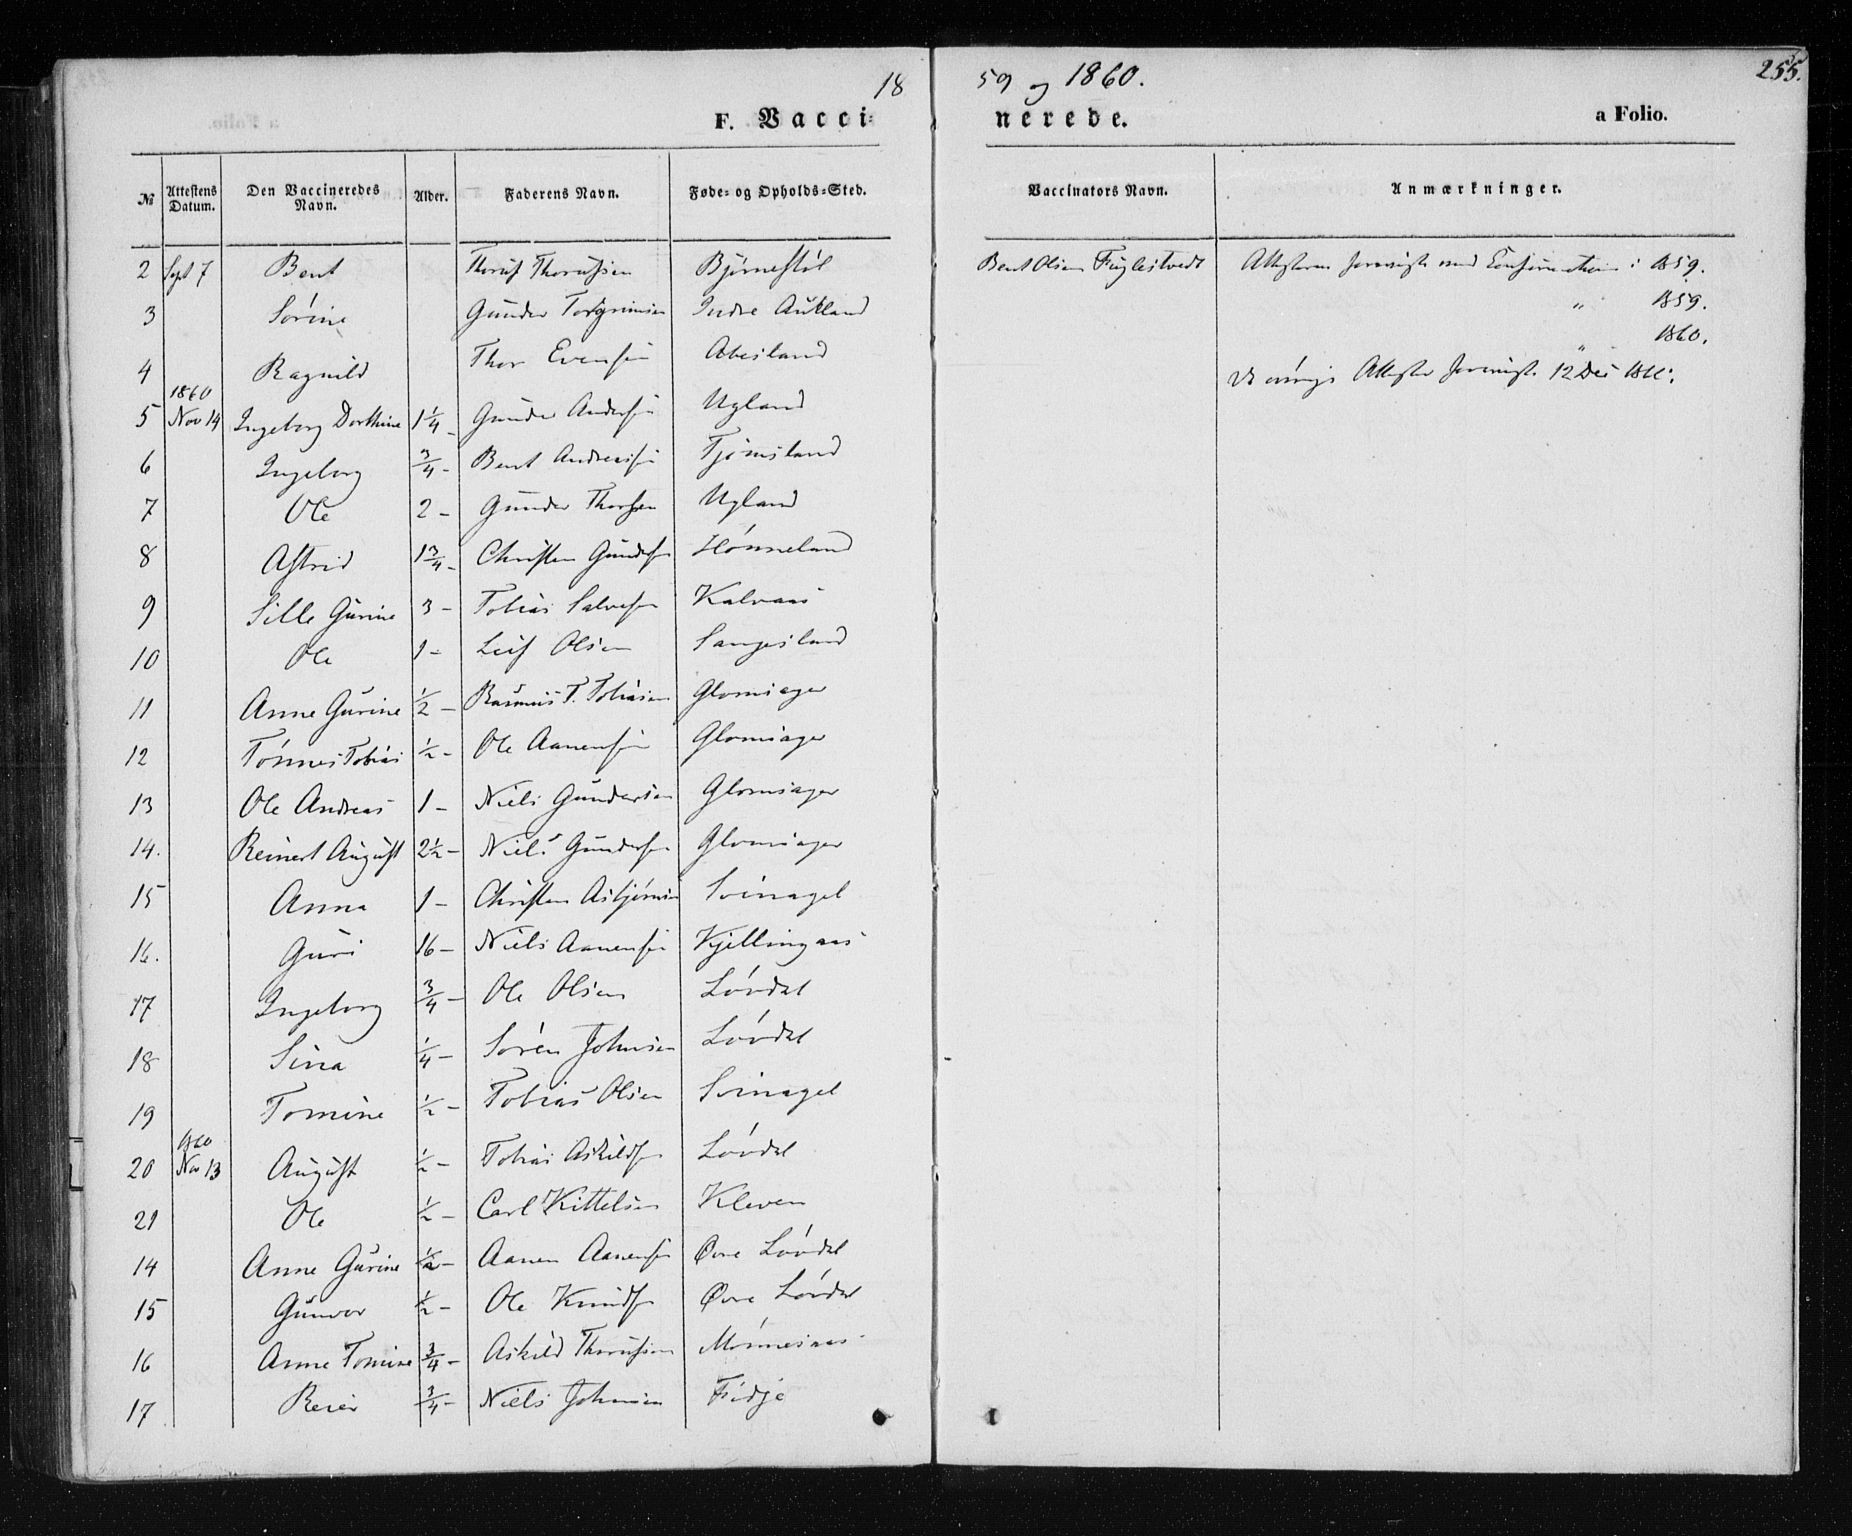 1859 og 1860.
255.
F. Vaccinerede. a Folio.
№ Attestens Datum. Den Vaccineredes Navn. Alder. Faderens Navn. Føde- og Opholds-Sted. Vaccinators Navn. Anmærkninger.
2 Sept 7 Bent Bjørnestøl Bent Olsen Fuglestvedt 1859.
3 Sørine Gunder Torgrimsen Indre Aukland " 1859.
4 Ragnild Thor Evensen Abesland " 1860.
12 Dec
1860
5 Nov 14 Ingeborg Dorthine 1¼ - Gunder Andersen Ugland
6 Ingeborg ¾ - Bent Andreassen Tjømsland
7 Ole 2 - Gunder Thorsen Ugland
8 Astrid 1¾ - Christen Gundersen Hønneland
9 Sille Gurine 3 - Tobias Salvesen Kalvaas
10 Ole 1 - Leif Olsen Sangesland
11 Anne Gurine ½ - Rasmus T. Tobiasen Glomsager
12 Tønnes Tobias ½ - Ole Aanensen Glomsager
13 Ole Andreas 1 - Niels Gundersen Glomsager
14. Reinert August 2½ - Niels Gundersen Glomsager
15 Anna 1 - Christen Asbjørnsen Svinagel
16. Guri 16 - Niels Aanensen Kjellingaas
17 Ingeborg ¾ - Ole Olsen Løvdal
18 Sina ¼ - Søren Johnsen Løvdal
19 Tomine ½ - Tobias Olsen Svinagel
1860
20 Nov 13 August ½ - Tobias Askildsen Løvdal
21 Ole ½ - Carl Kittelsen Kleven
14 Anne Gurine ½ - Aanen Aanensen Øvre Løvdal
15 Gunvor ½ - Ole Knudsen Øvre Løvdal
16 Anne Tomine ¾ - Askild Thorussen Monnesaas
17 Reier ¾ - Niels Johnsen Fidje